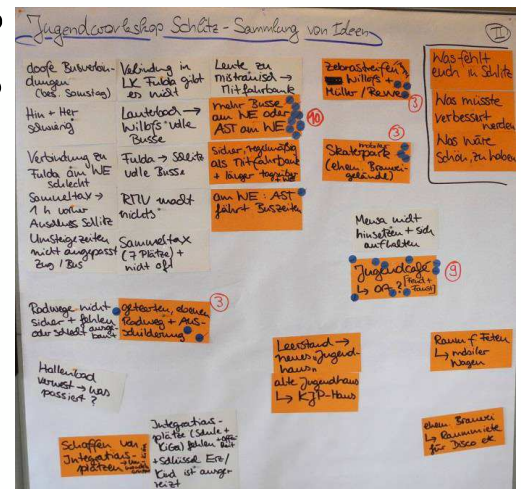 Jugendworkshop Schlitz - Sammlung von Ideen
II
doofe Busverbin-
dungen
(bes. Samstag)
Hin + Her
schwierig
Verbindung zu
Fulda am WE
schlecht
Sammeltax →
1 h vorher
Anschluss Schlitz
Umsteigezeiten
nicht angepasst
Zug / Bus
Verbindung in
LK Fulda gibt
es nicht
Lauterbach →
Willofs volle
Busse
Fulda → Schlitz
volle Busse
RMV macht
nichts
Sammeltax
(7 Plätze) +
nicht oft
Leute zu
misstrauisch →
Mitfahrbank
mehr Busse
am WE oder
AST am WE
10
Sicher, regelmäßig
als Mitfahrbank
+ länger tagsüber
+ WE
am WE: AST
fährt Buszeiten
Zebrastreifen
Willofs +
Müller / Rewe
3
3
mobiler
Skatepark
(ehem. Brauerei-
gelände)
Was fehlt
euch in Schlitz
Was müsste
verbessert
werden
Was wäre
schön, zu haben
Mensa nicht
hinsetzen + sich
aufhalten
Jugendcafé
9
Radwege nicht
sicher + fehlen
oder schlecht ausge-
baut
geteerten, ebenen
Radweg + Aus-
schilderung
3
Hallenbad
verwest → was
passiert?
Leerstand →
neues "Jugend-
haus"
altes Jugendhaus
↳ KJP-Haus
Raum f. Feten
↳ mobiler
Wagen
ehem. Brauerei
↳ Raummiete
für Disco etc.
Schaffen von
Integrations-
plätzen
Integrations-
plätze (Schule +
KiGa) fehlen
+ Schlüssel Erz/
Kind ist ausge-
reizt